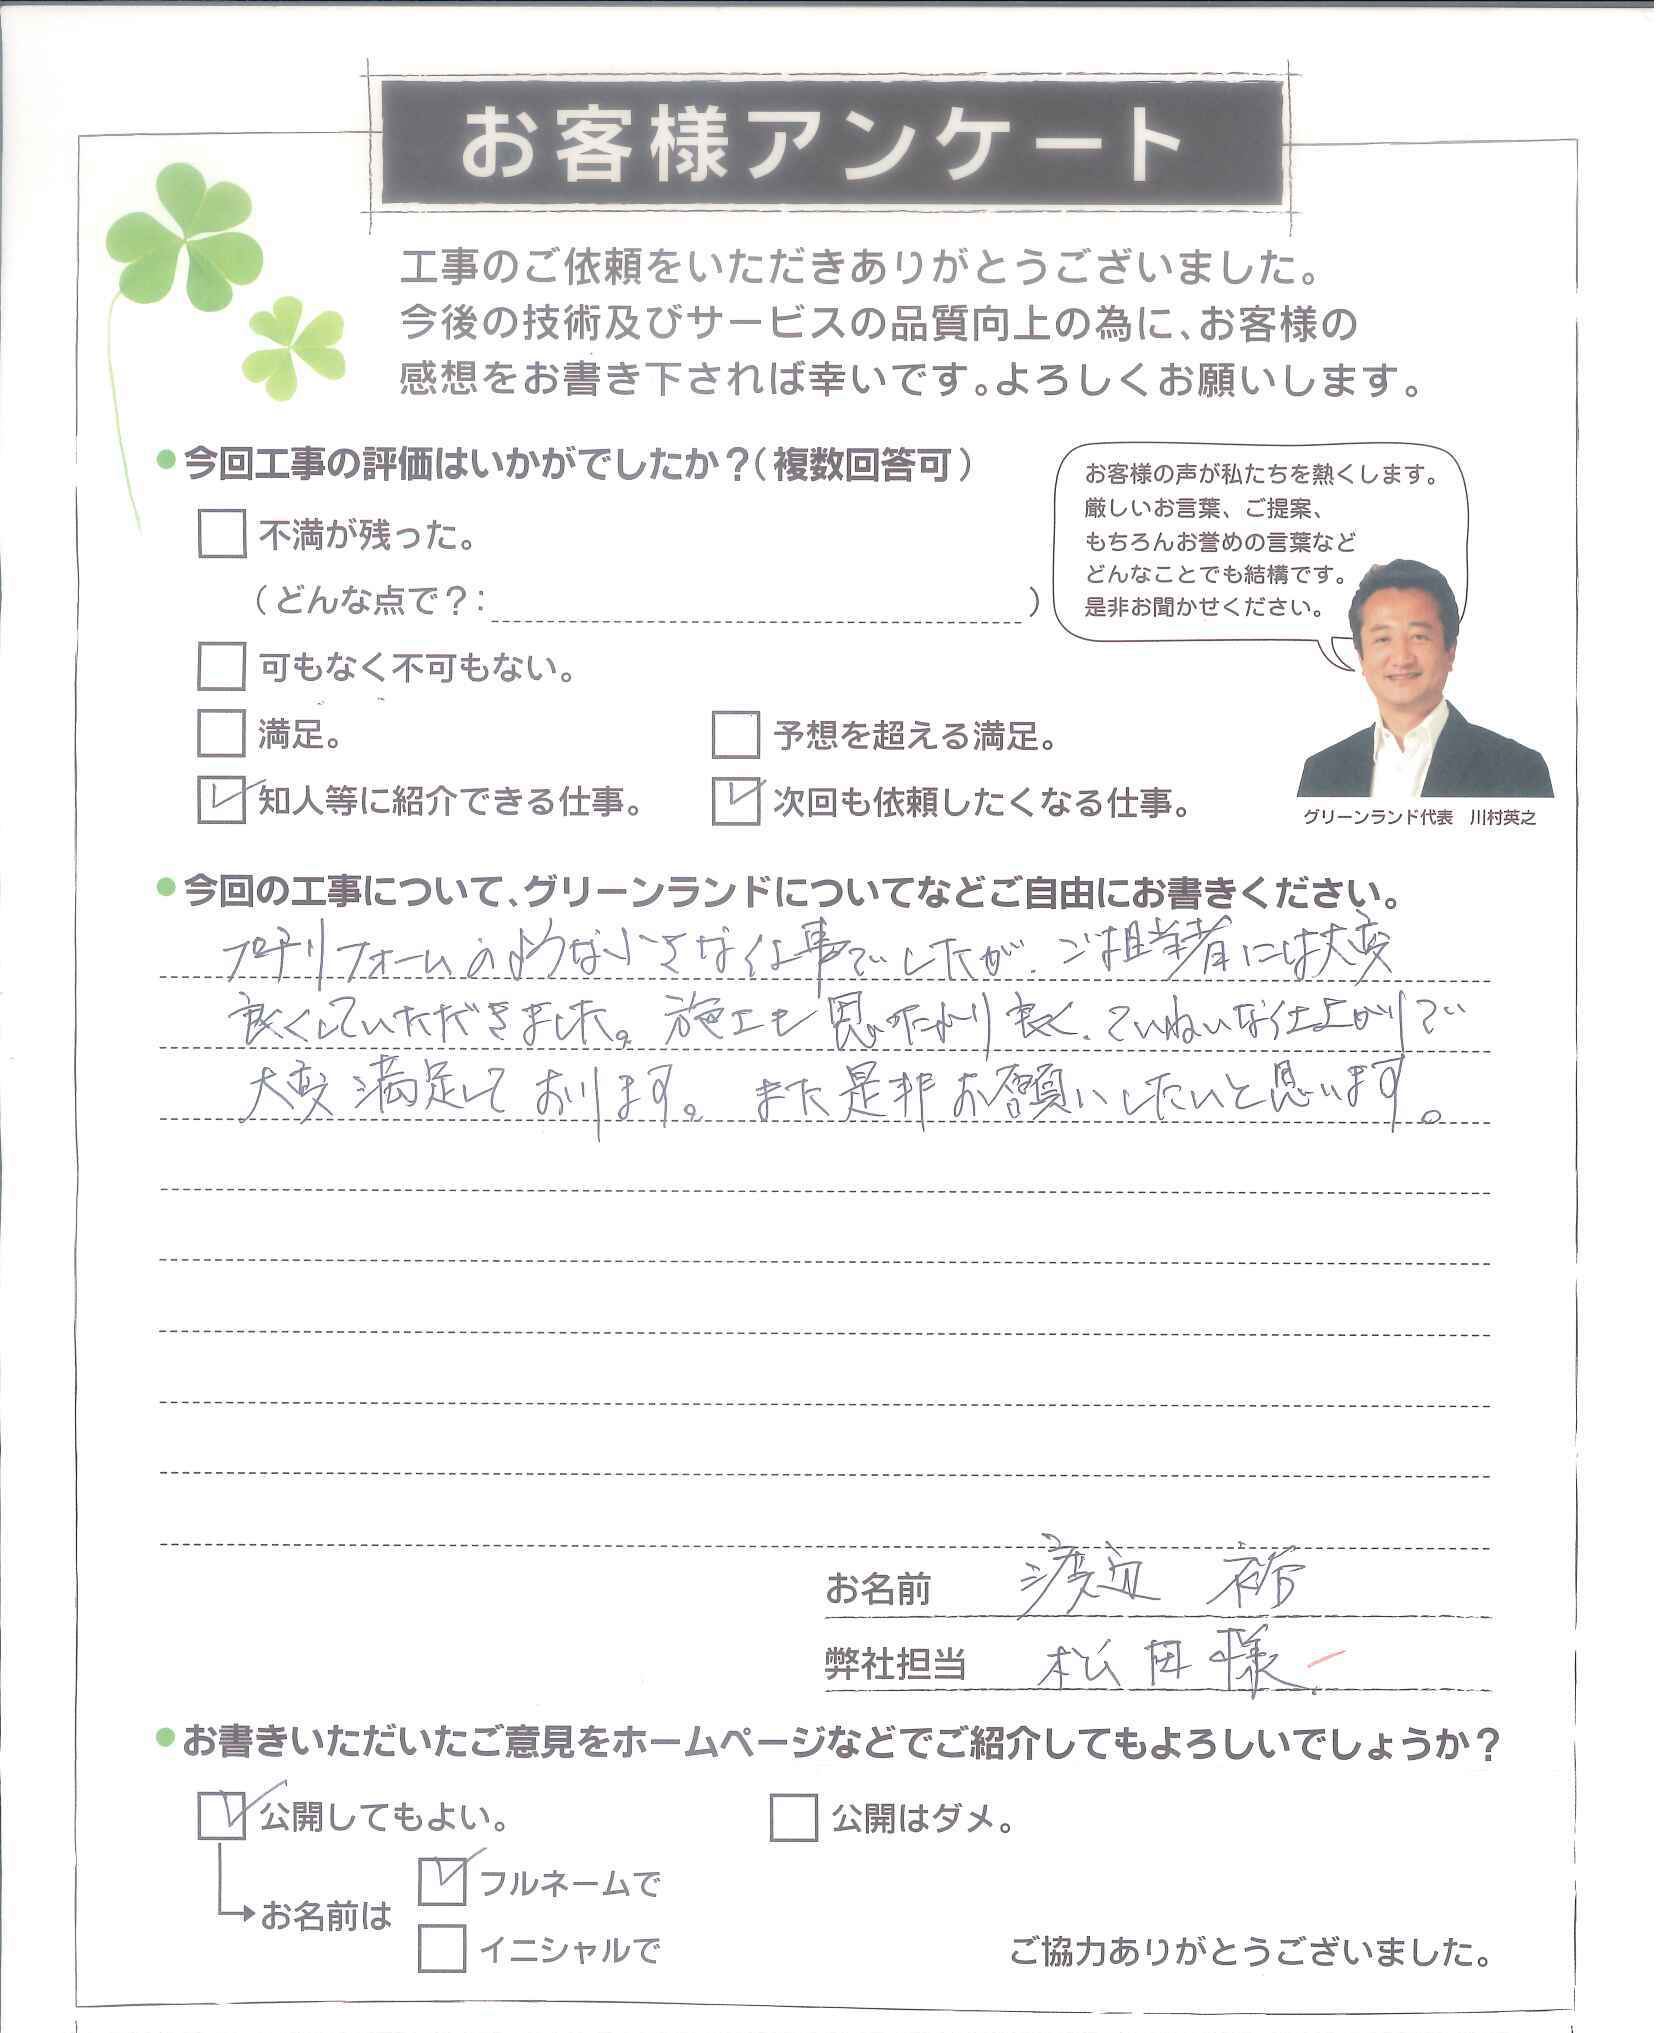 お客様アンケート
工事のご依頼をいただきありがとうございました。
今後の技術及びサービスの品質向上の為に、お客様の
感想をお書き下されば幸いです。よろしくお願いします。
●今回工事の評価はいかがでしたか?(複数回答可)
不満が残った。
(どんな点で?: )
可もなく不可もない。
満足。
予想を超える満足。
知人等に紹介できる仕事。
次回も依頼したくなる仕事。
お客様の声が私たちを熱くします。
厳しいお言葉、ご提案、
もちろんお誉めの言葉など
どんなことでも結構です。
是非お聞かせください。
グリーンランド代表 川村英之
●今回の工事について、グリーンランドについてなどご自由にお書きください。
プチリフォームのような小さな仕事でしたが、ご担当者には大変
良くしていただきました。施工も思いのたより良く、ていねいな仕上がりで
大変満足しております。また是非お願いしたいと思います。
お名前 渡辺 裕
弊社担当 松田様
●お書きいただいたご意見をホームページなどでご紹介してもよろしいでしょうか?
公開してもよい。
公開はダメ。
お名前は
フルネームで
イニシャルで
ご協力ありがとうございました。